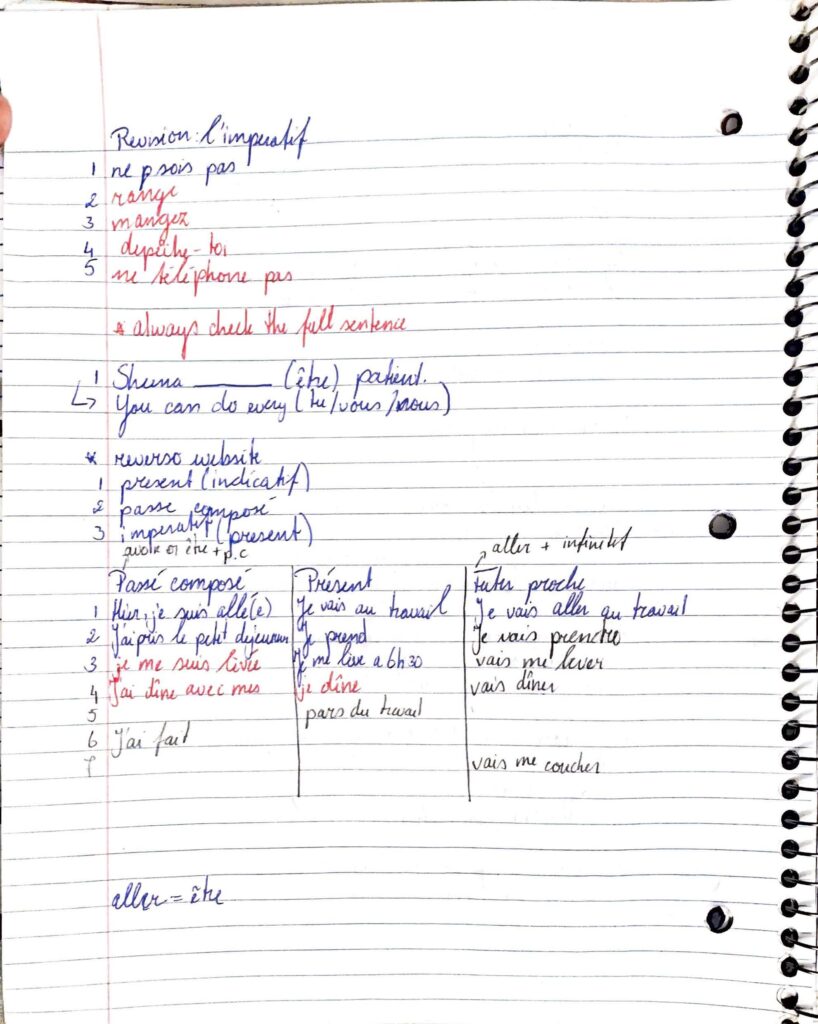 Revision: l'imperatif
1 ne psois pas
2 range
3 mangez
4 depêche-toi
5 ne téléphone pas
* always check the full sentence
1 Sheena ______ (être) patient.
↳ You can do every (tu/vous/nous)
* reverso website
1 present (indicatif)
2 passe composé
3 imperatif (present)
avoir or être + p.c
aller + infinitif
Passé composé | Présent | Futur proche
1 Hier, je suis allé(e) | Je vais au travail | Je vais aller au travail
2 J'ai pris le petit dejeuner | Je prend | Je vais prendre
3 je me suis livée | Je me live a 6h30 | vais me lever
4 J'ai dîné avec mes | je dîne | vais dîner
5 | pars du travail
6 J'ai fait
7 | | vais me coucher
aller = être